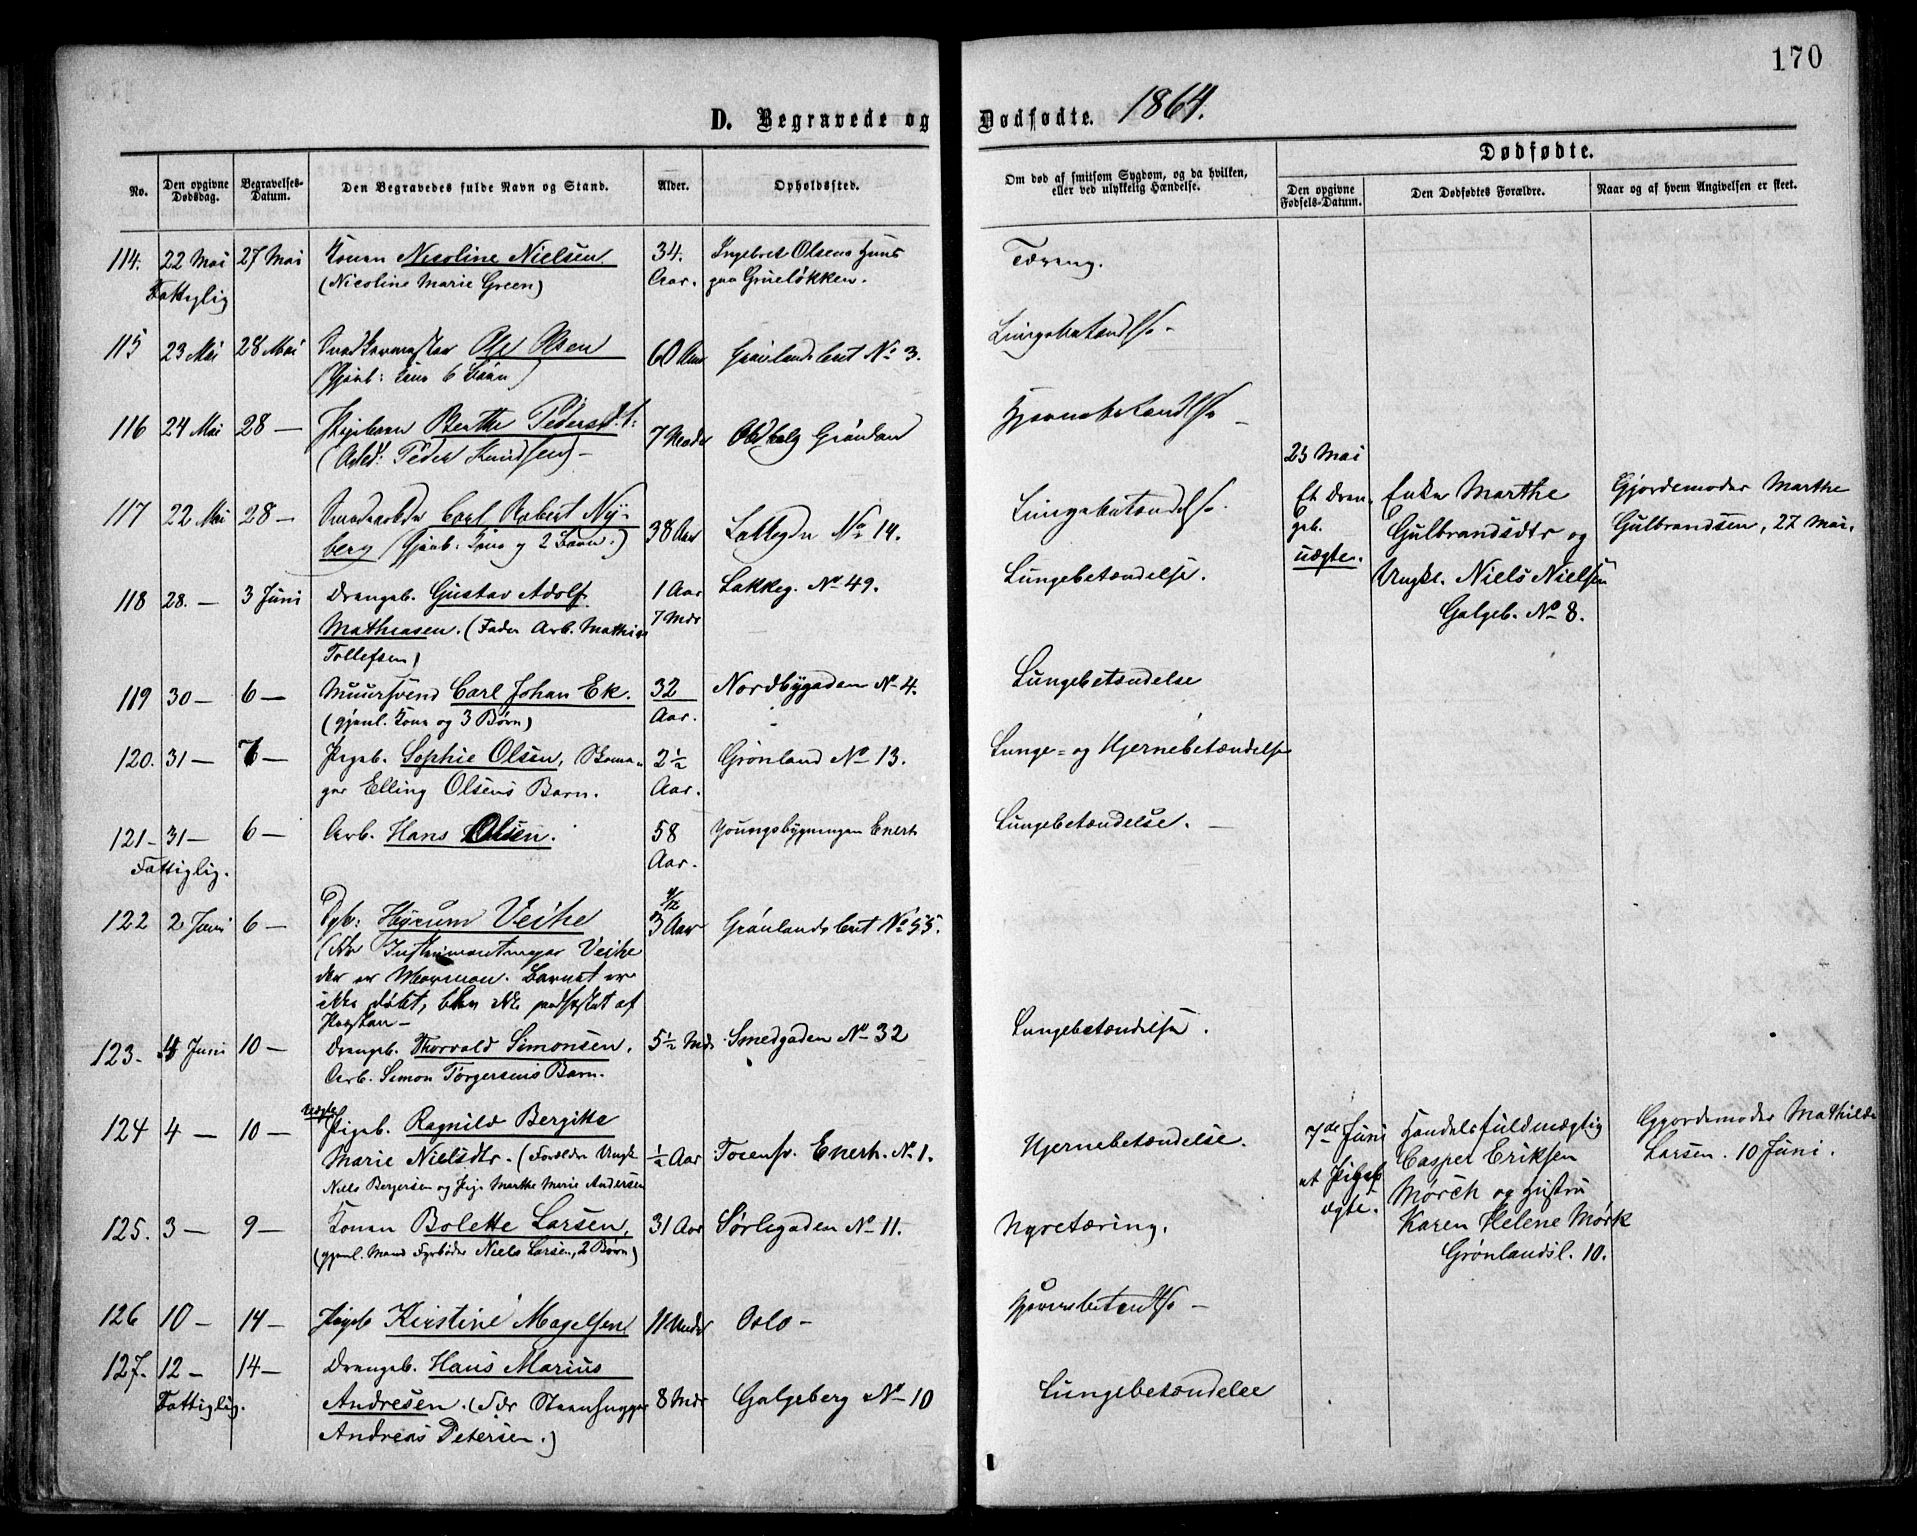 170
D. Begravede og Dødfødte. 1864.
No.
Den opgivne Dødsdag.
Begravelses-Datum.
Den Begravedes fulde Navn og Stand.
Alder.
Opholdssted.
Om død af smitsom Sygdom, og da hvilken, eller ved ulykkelig Hændelse.
Dødfødte.
Den opgivne Fødsels-Datum.
Den Dødfødtes Forældre.
Naar og af hvem Angivelsen er skeet.
114. 22 Mai 27 Mai Konen Nicoline Nielsen. 34. Ingebret Olsens Huus Tæring.
Fattiglig (Nicoline Marie Green) Aar. paa Grüeløkken.
115 23 Mai 28 Mai Ole Olsen 60 Aar Grønlandsleret No 3. Lungebetændelse -
(Gjenl: Kone 6 Børn)
116 24 Mai 28 — Pigebarn Berthe Pedersdt: 7 Mndr Grønland Hjernebetændelse -
(Peder Knudsen) -
117 22 Mai 28 — Carl Robert Ny- 38 Aar Lakkegdn No 14. Lungebetændelse.
berg (Gjenl. Kone og 2 Børn.)
23 Mai
Et Dren- Enke Marthe Gjordemoder Marthe
geb. Gulbrandsdtr og Gulbrandsen, 27 Mai.
uægte. Ungkl. Niels Nielsen
Galgeb. No 8.
118 28. — 3 Juni Drengeb. Gustav Adolf 1 Aar Lakkeg. No 49. Lungebetændelse.
Mathiasen. (Fader Arb. Mathias 7 Mdr
Tollefsen)
119 30 — 6 — Muursvend Carl Johan Ek. 32 Nordbygaden No 4. Lungebetændelse
(gjenl. Kone og 3 Børn) Aar.
120. 31 — 7 — Pigeb. Sophie Olsen, Skoma- 2½ Grønland No 13. Lunge- og Hjernebetændelse
ger Elling Olsens Barn. Aar.
121 — 31 — 6 — Arb. Hans Olsen. 58 Youngsbygningen Enerh Lungebetændelse. —
Fattiglig. Aar.
122 2 Juni 6 — Pgb: Hyrum Veihe 3 Aar Grønlandsleret No 55.
(Instrumentmager Veihe
der er Mormon. Barnet er
ikke døbt, blev ikke jordfæstet af
Præsten —
123. 4 Juni 10 — Drengeb. Thorvald Simonsen, 5½ Mdr Smedgaden No 32 Lungebetændelse.
Arb. Simon Torgersens Barn.
124 4 — 10 — uægte Pigeb. Ragnild Bergitte
Marie Nielsdtr. (Forældre Ungk. ½ Aar Enerh. No 1. Hjernebetændelse.
Niels Bergersen og Pige Marthe Marie Andersen
7de Juni Handelsfuldmægtig Gjordemoder Mathilde
et Pigeb Casper Eriksen Larsen. 10 Juni.
ægte. Mørch og Hustru
Karen Helene Mørk
Grønlandsl. 10.
125. 3 — 9 — Konen Bolette Larsen, 31 Aar Sørlegaden No 11. Nyretæring.
(gjenl. Mand Fyrbøder Niels Larsen, 2 Børn)
126 10 — 14 — Pigeb Kirstine Magelsen 11 Mndr Oslo — Hjernebetændelse —
127. 12 — 14 — Drengeb. Hans Marius
Fattiglig. Andresen. (Fdr Steenhugger 8 Mdr Galgeberg No 10 Lungebetændelse
Andreas Petersen.)